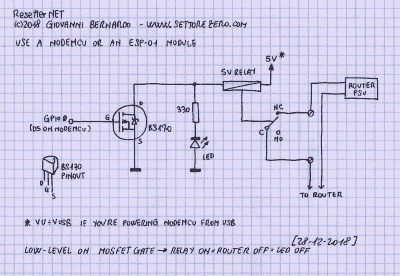 ResetterNET
(c)2018 GIOVANNI BERNARDO - WWW.SETTOREZERO.COM
USE A NODEMCU OR AN ESP-01 MODULE
5V *
5V RELAY
ROUTER
PSU
NC
D
330
GPIO0
(D3 ON NODEMCU)
G
BS170
C
NO
S
LED
BS170
PINOUT
D
G
S
TO ROUTER
* VU=VUSB IF YOU'RE POWERING NODEMCU FROM USB
[28-12-2018]
LOW-LEVEL ON MOSFET GATE → RELAY ON=ROUTER OFF=LED OFF